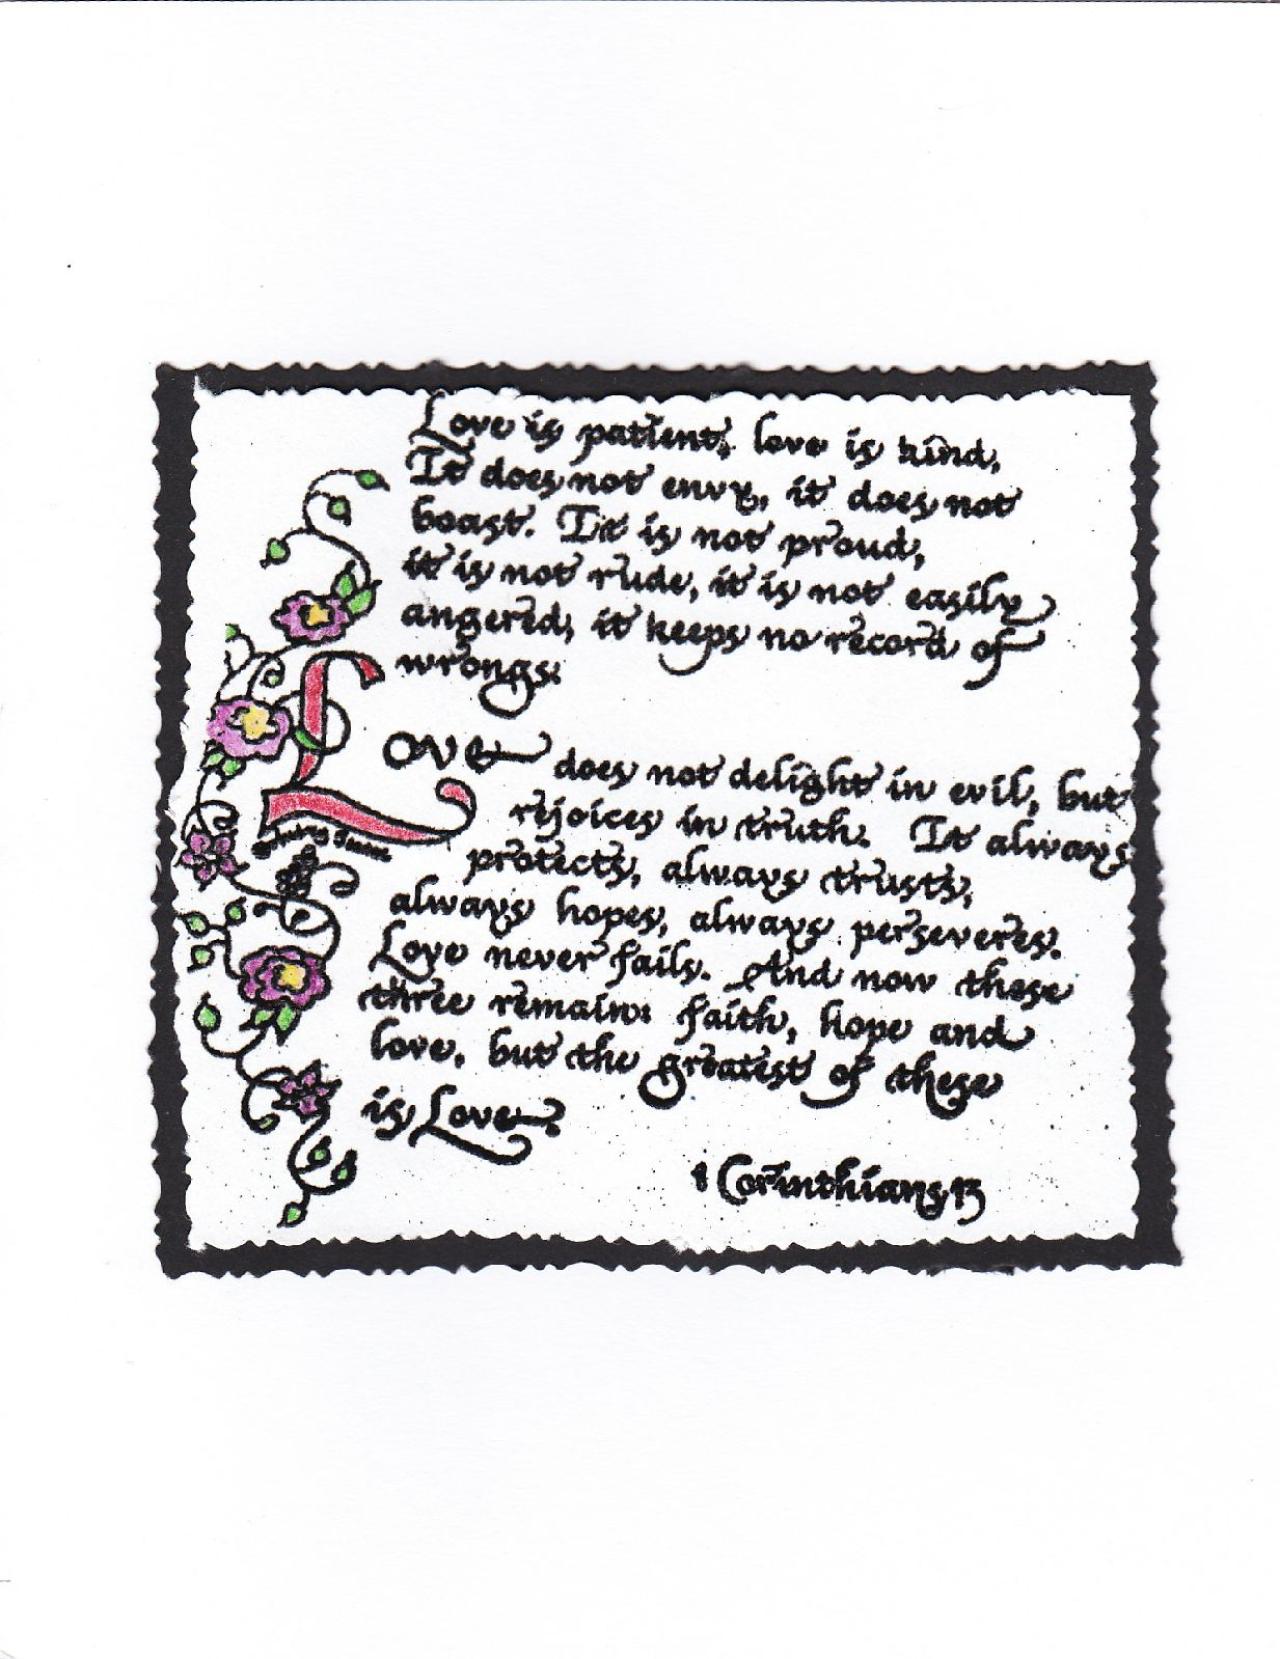 Love is patient, love is kind,
It does not envy, it does not
boast. It is not proud,
it is not rude, it is not easily
angered, it keeps no record of
wrongs.
Love does not delight in evil, but
rejoices in truth. It always
protects, always trusts,
always hopes, always perseveres.
Love never fails. And now these
three remain: faith, hope and
love, but the greatest of these
is Love.
1 Corinthians 13